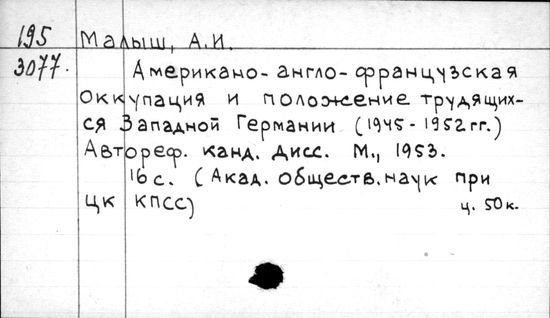 195 Малыш, А.И.
3077. Американо-англо-французская
оккупация и положение трудящих-
ся Западной Германии (1945-1952гг.)
Автореф. канд. дисс. М., 1953.
16с. (Акад. обществ. наук при
ЦК КПСС) ц. 50к.